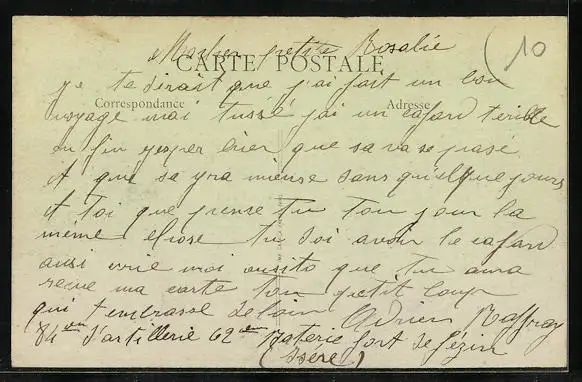 Mon cher petite Rosalie
10
CARTE POSTALE
je te dirait que j'ai fait un bon
Correspondance
Adresse
voyage mai tussé j'ai un cafard terible
en fin j'esper bien que sa va se pasé
et que sa yra mieuse dans quelque jours
et toi que pense tu toujour la
même chose tu doi avoir le cafard
ausi écrie moi ausito que tu aura
reçue ma carte ton petit loup
qui t'embrasse de loin Adrien Raffray
d'artillerie 62 em Baterie fort de Sézin
(Isère)